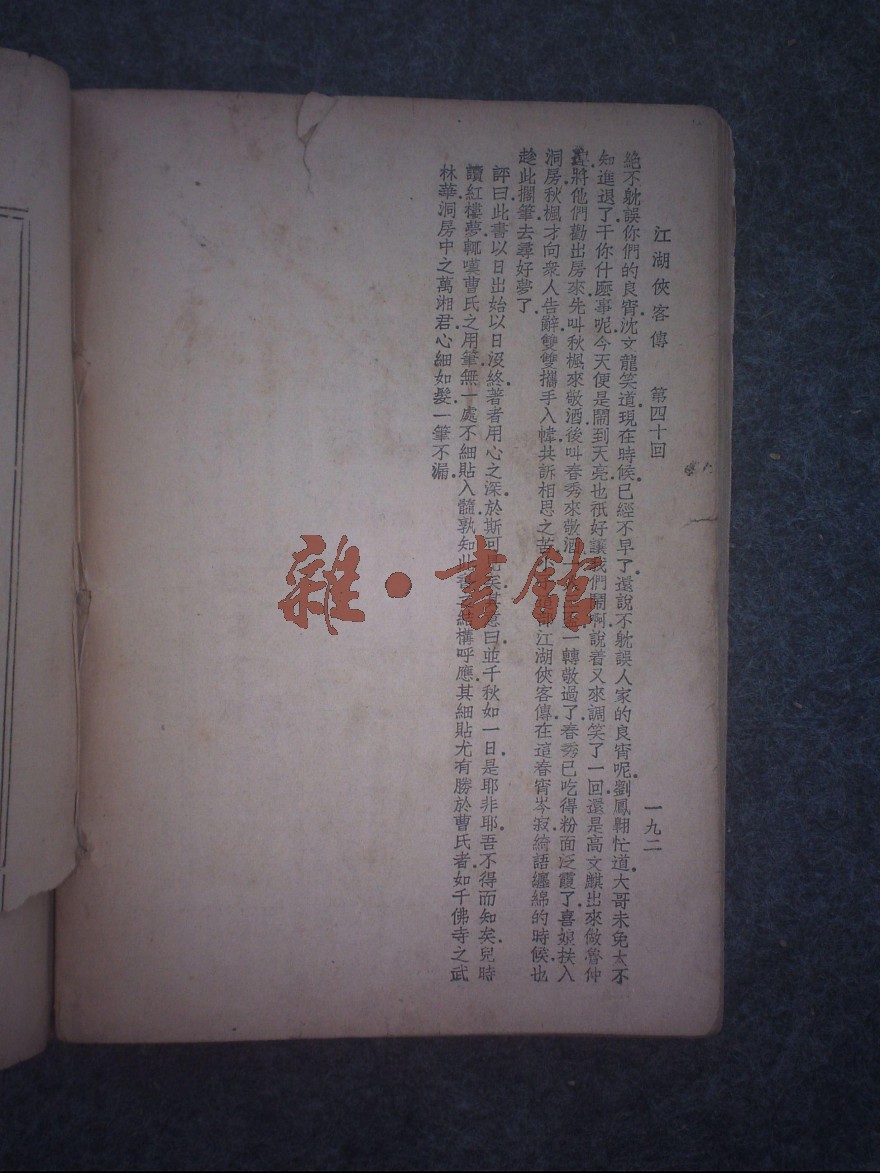 江湖俠客傳 第四十回 一九二
絕不躭誤你們的良宵沈文龍笑道現在時候已經不早了還說不躭誤人家的良宵呢劉鳳翺忙道大哥未免太不
知進退了干你什麽事呢今天便是鬧到天亮也祇好讓我們鬧啊說着又來調笑了一回還是高文麒出來做魯仲
連將他們勸出房來先叫秋楓來敬酒後叫春秀來敬酒一轉敬過了春秀已吃得粉面泛霞了喜娘扶入
洞房秋楓才向衆人告辭雙雙攜手入幃共訴相思之苦江湖俠客傳在這春宵岑寂綺語纏綿的時候也
趁此擱筆去尋好夢了
評曰此書以日出始以日沒終著者用心之深於斯可矣意曰並千秋如一日是耶非耶吾不得而知矣兒時
讀紅樓夢輒嘆曹氏之用筆無一處不細貼入髓孰知此結構呼應其細貼尤有勝於曹氏者如千佛寺之武
林華洞房中之萬湘君心細如髮一筆不漏
雜·書館